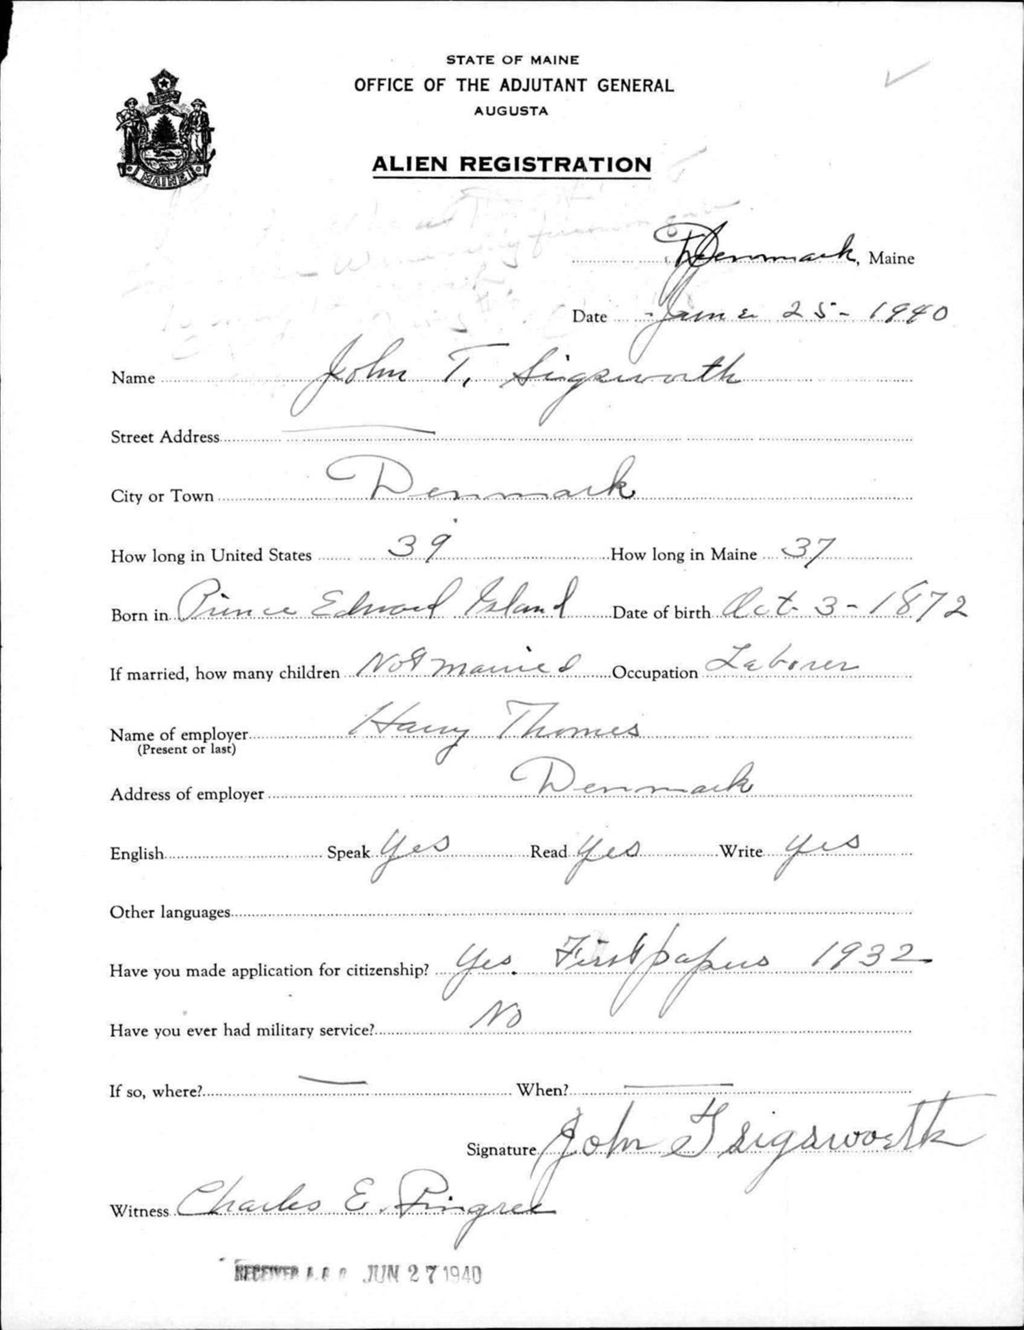 STATE OF MAINE
OFFICE OF THE ADJUTANT GENERAL
AUGUSTA
ALIEN REGISTRATION
MAINE
Denmark, Maine
Date June 25 - 1940
Name John T. Sigsworth
Street Address —
City or Town Denmark
How long in United States 39 How long in Maine 37
Born in Prince Edward Island Date of birth Oct - 3 - 1872
If married, how many children Not married Occupation Laborer
Name of employer Harry Thomes
(Present or last)
Address of employer Denmark
English Speak Yes Read Yes Write Yes
Other languages
Have you made application for citizenship? Yes. First papers 1932
Have you ever had military service? No
If so, where? — When? —
Signature John T Sigsworth
Witness Charles E. Pingree
RECEIVED A.G.O. JUN 27 1940